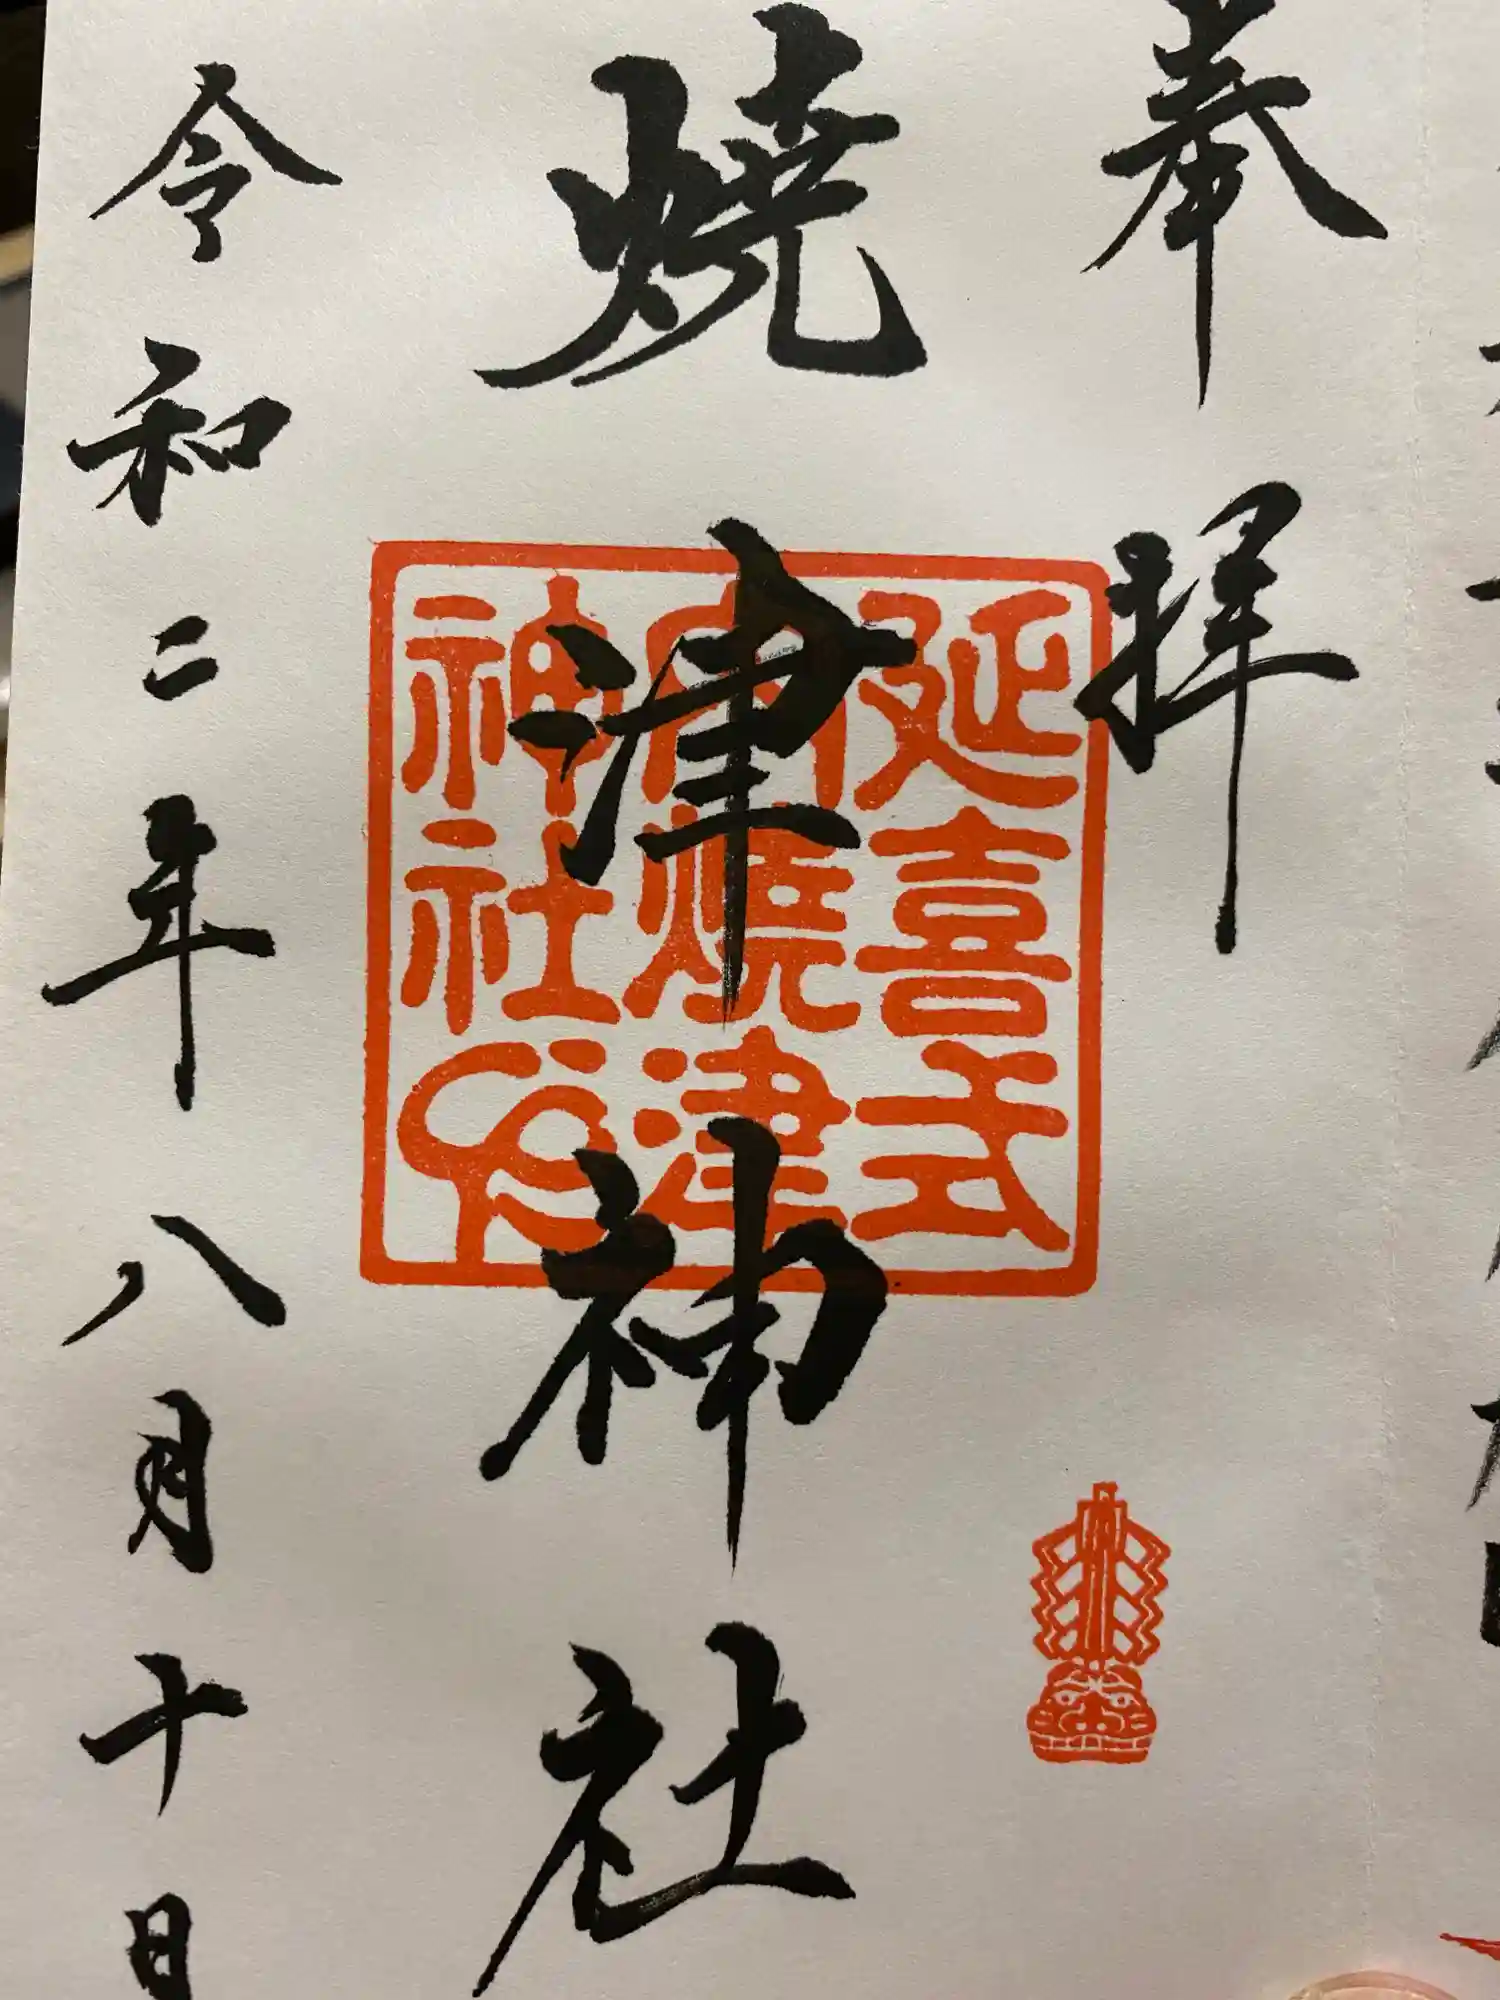 奉拝
焼津神社
延喜式
内焼津
神社印
令和二年八月十日